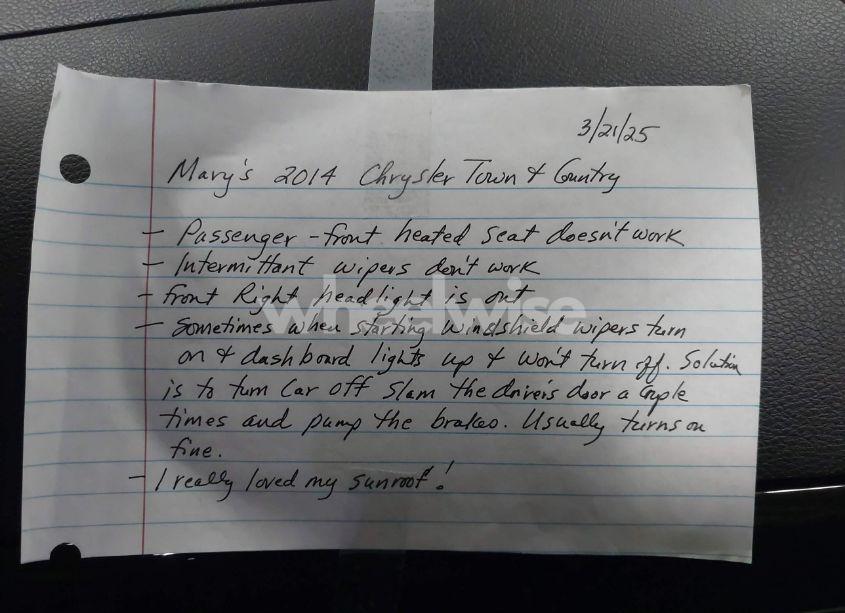 3/21/25
Mary's 2014 Chrysler Town & Country
- Passenger - front heated seat doesn't work
- Intermittant wipers don't work
- front Right headlight is out
wheelwise
- Sometimes when starting windshield wipers turn
on & dashboard lights up & won't turn off. Solution
is to turn Car off slam the driver's door a couple
times and pump the brakes. Usually turns on
fine.
- I really loved my sunroof!